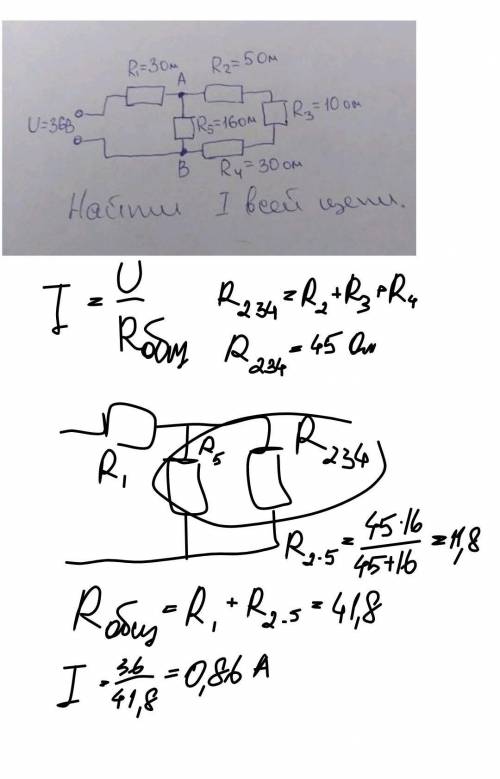 R₁=30м
A
R₂=50м
U=36В
R₅=160м
R₃=100м
B
R₄=300м
Найти I всей цепи.
I = U/Rобщ
R₂₃₄=R₂+R₃+R₄
R₂₃₄=45 Ом
R₁
R₅
R₂₃₄
R₂₋₅ = 45·16/45+16 = 11,8
Rобщ = R₁ + R₂₋₅ = 41,8
I = 36/41,8 = 0,86 А